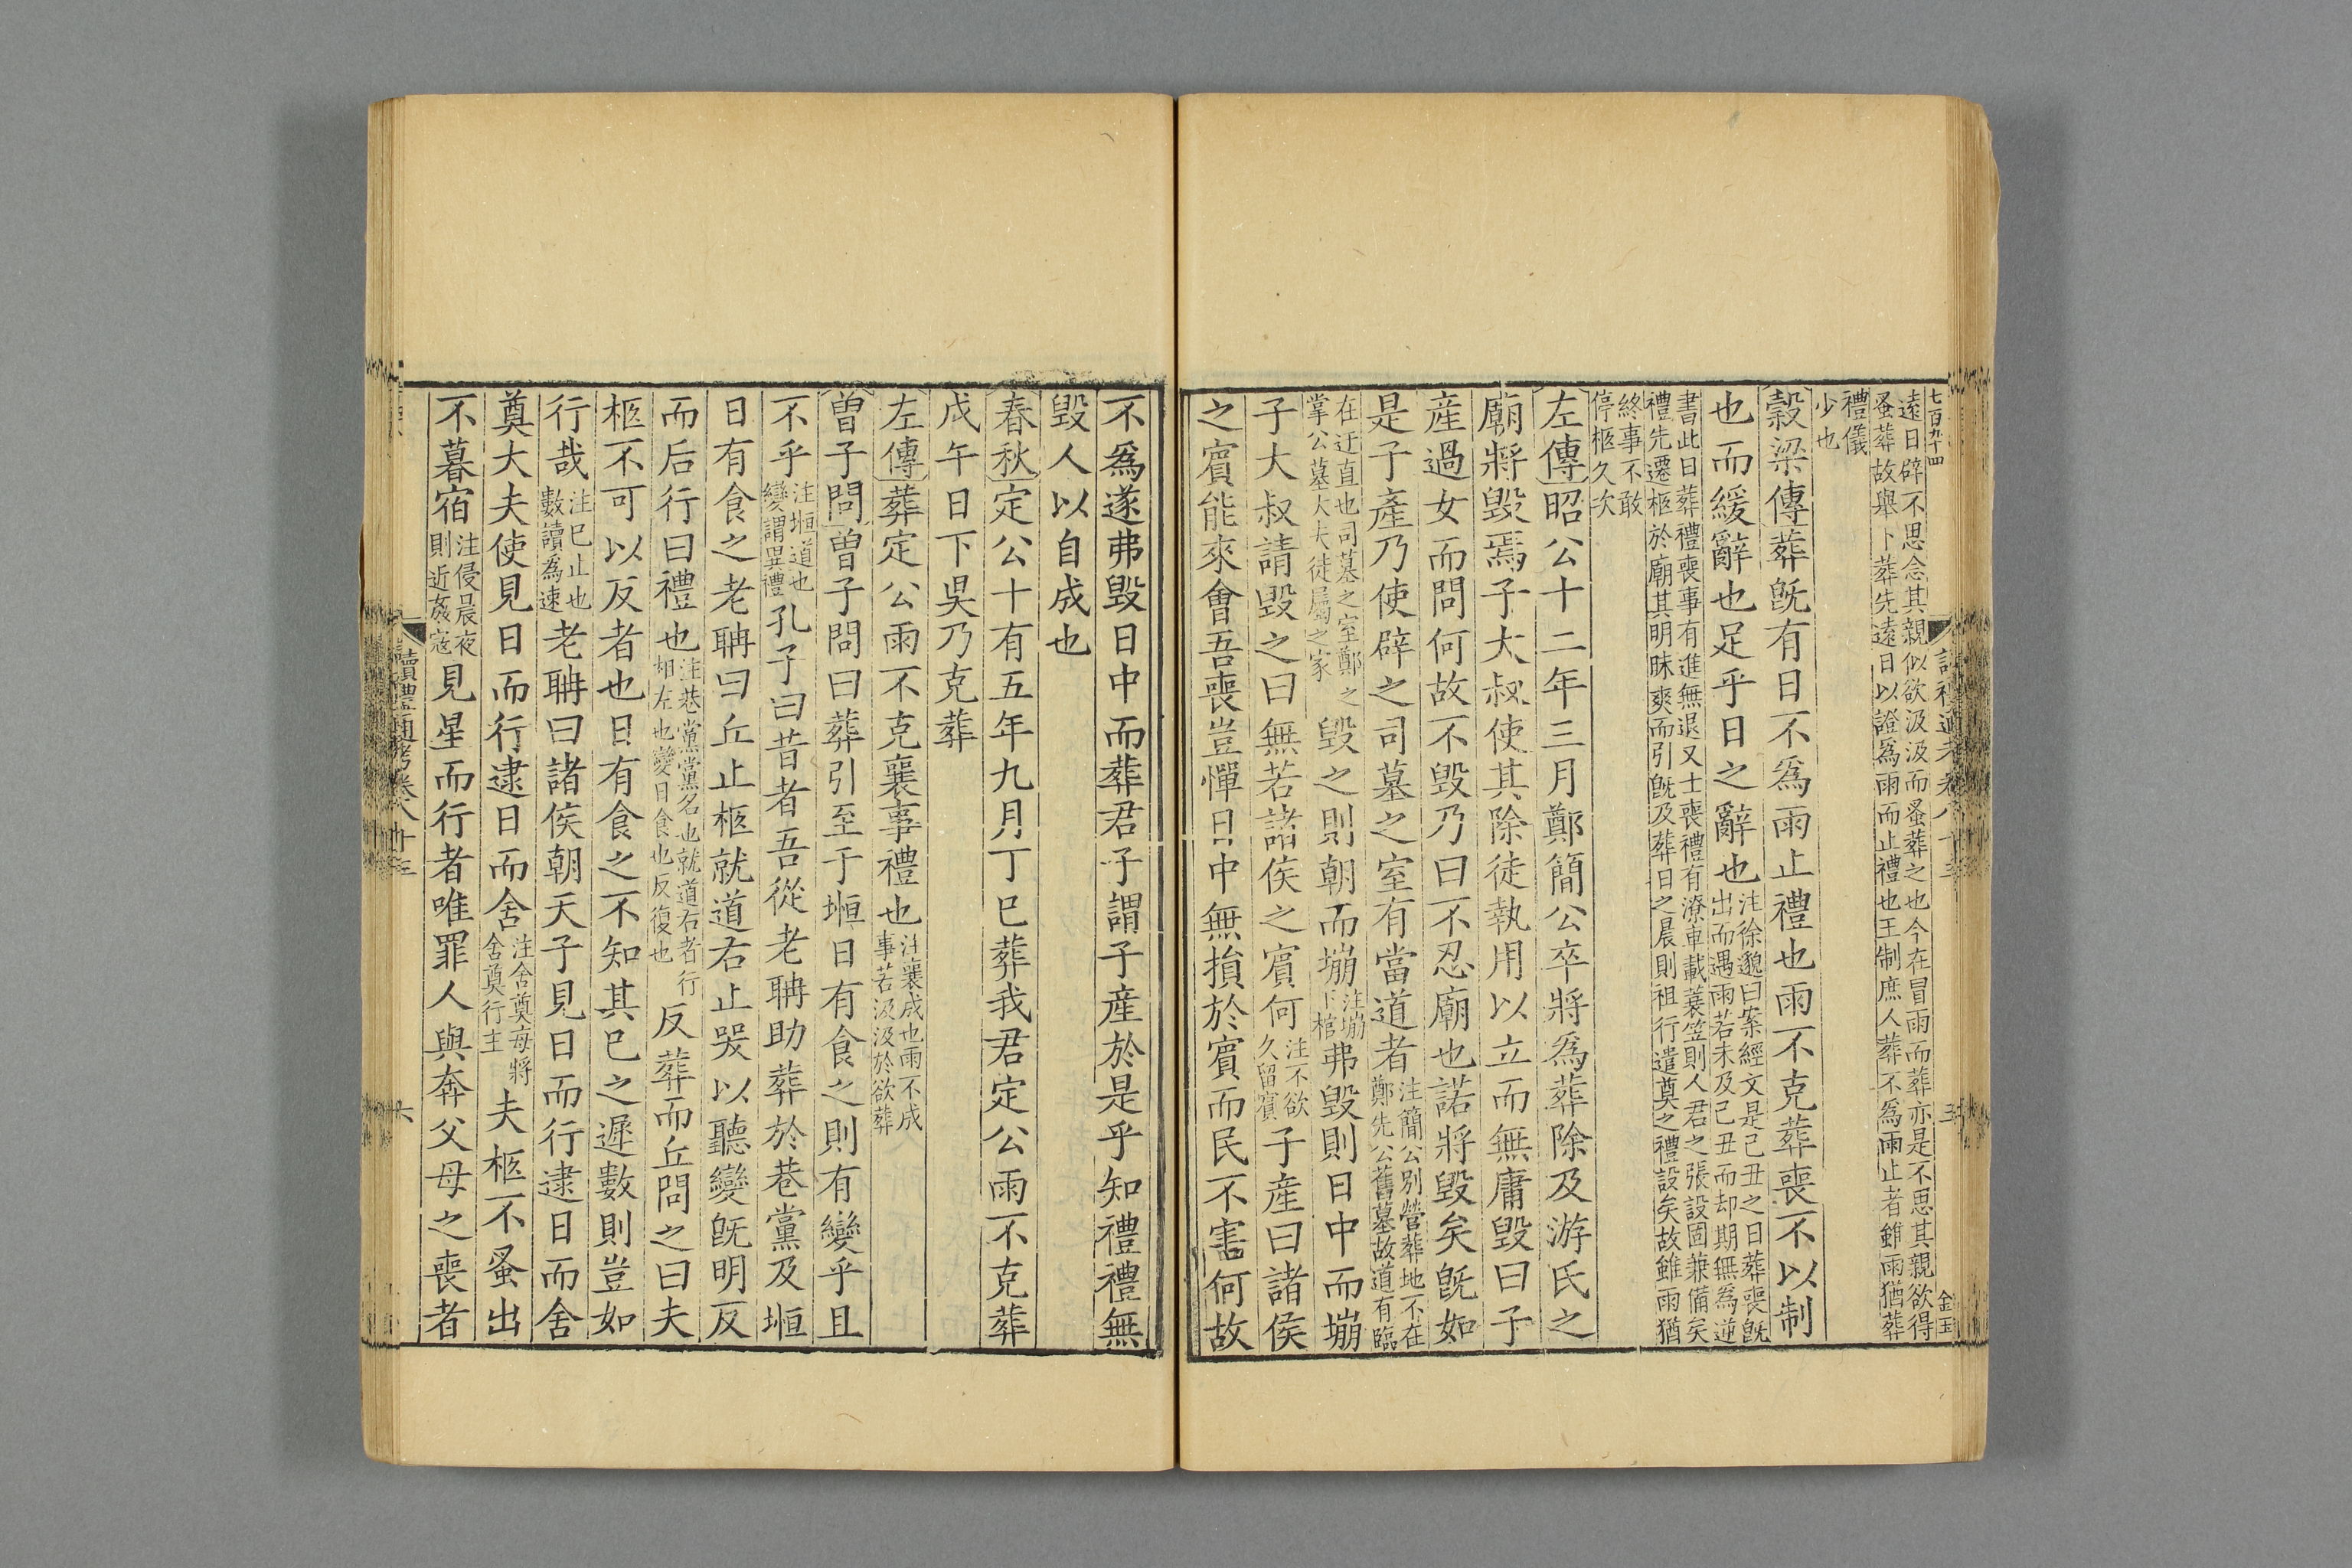 七百九十四
遠日辟不思念其親似欲汲汲而蚤葬之也今在冒雨而葬亦是不思其親欲得
蚤葬故舉卜葬先遠日以證爲雨而止禮也王制庶人葬不爲雨止者雖雨猶葬
禮儀
少也
穀梁傳葬旣有日不爲雨止禮也雨不克葬喪不以制
也而緩辭也足乎日之辭也注徐邈曰案經文是己丑之日葬喪旣
出而遇雨若未及己丑而却期無爲逆
書此日葬禮喪事有進無退又士喪禮有潦車載蓑笠則人君之張設固兼備矣
禮先遷柩於廟其明昧爽而引旣及葬日之晨則祖行遣奠之禮設矣故雖雨猶
終事不敢
停柩久次
左傳昭公十二年三月鄭簡公卒將爲葬除及游氏之
廟將毀焉子大叔使其除徒執用以立而無庸毀曰子
產過女而問何故不毀乃曰不忍廟也諾將毀矣旣如
是子產乃使辟之司墓之室有當道者注簡公別營葬地不在
鄭先公舊墓故道有臨
在迂直也司墓之室鄭之
掌公墓大夫徒屬之家
毀之則朝而塴注塴
下棺
弗毀則日中而塴
子大叔請毀之曰無若諸侯之賓何注不欲
久留賓
子產曰諸侯
之賓能來會吾喪豈憚日中無損於賓而民不害何故
不爲遂弗毀日中而葬君子謂子產於是乎知禮禮無
毀人以自成也
春秋定公十有五年九月丁巳葬我君定公雨不克葬
戊午日下昃乃克葬
左傳葬定公雨不克襄事禮也注襄成也雨不成
事若汲汲於欲葬
曾子問曾子問曰葬引至于堩日有食之則有變乎且
不乎注堩道也
變謂異禮
孔子曰昔者吾從老聃助葬於巷黨及堩
日有食之老聃曰丘止柩就道右止哭以聽變旣明反
而后行曰禮也注巷黨黨名也就道右者行
相左也變日食也反復也
反葬而丘問之曰夫
柩不可以反者也日有食之不知其已之遲數則豈如
行哉注已止也
數讀爲速
老聃曰諸侯朝天子見日而行逮日而舍
奠大夫使見日而行逮日而舍注舍奠每將
舍奠行主
夫柩不蚤出
不暮宿注侵晨夜
則近姦寇
見星而行者唯罪人與奔父母之喪者
讀禮通考卷八十三
六